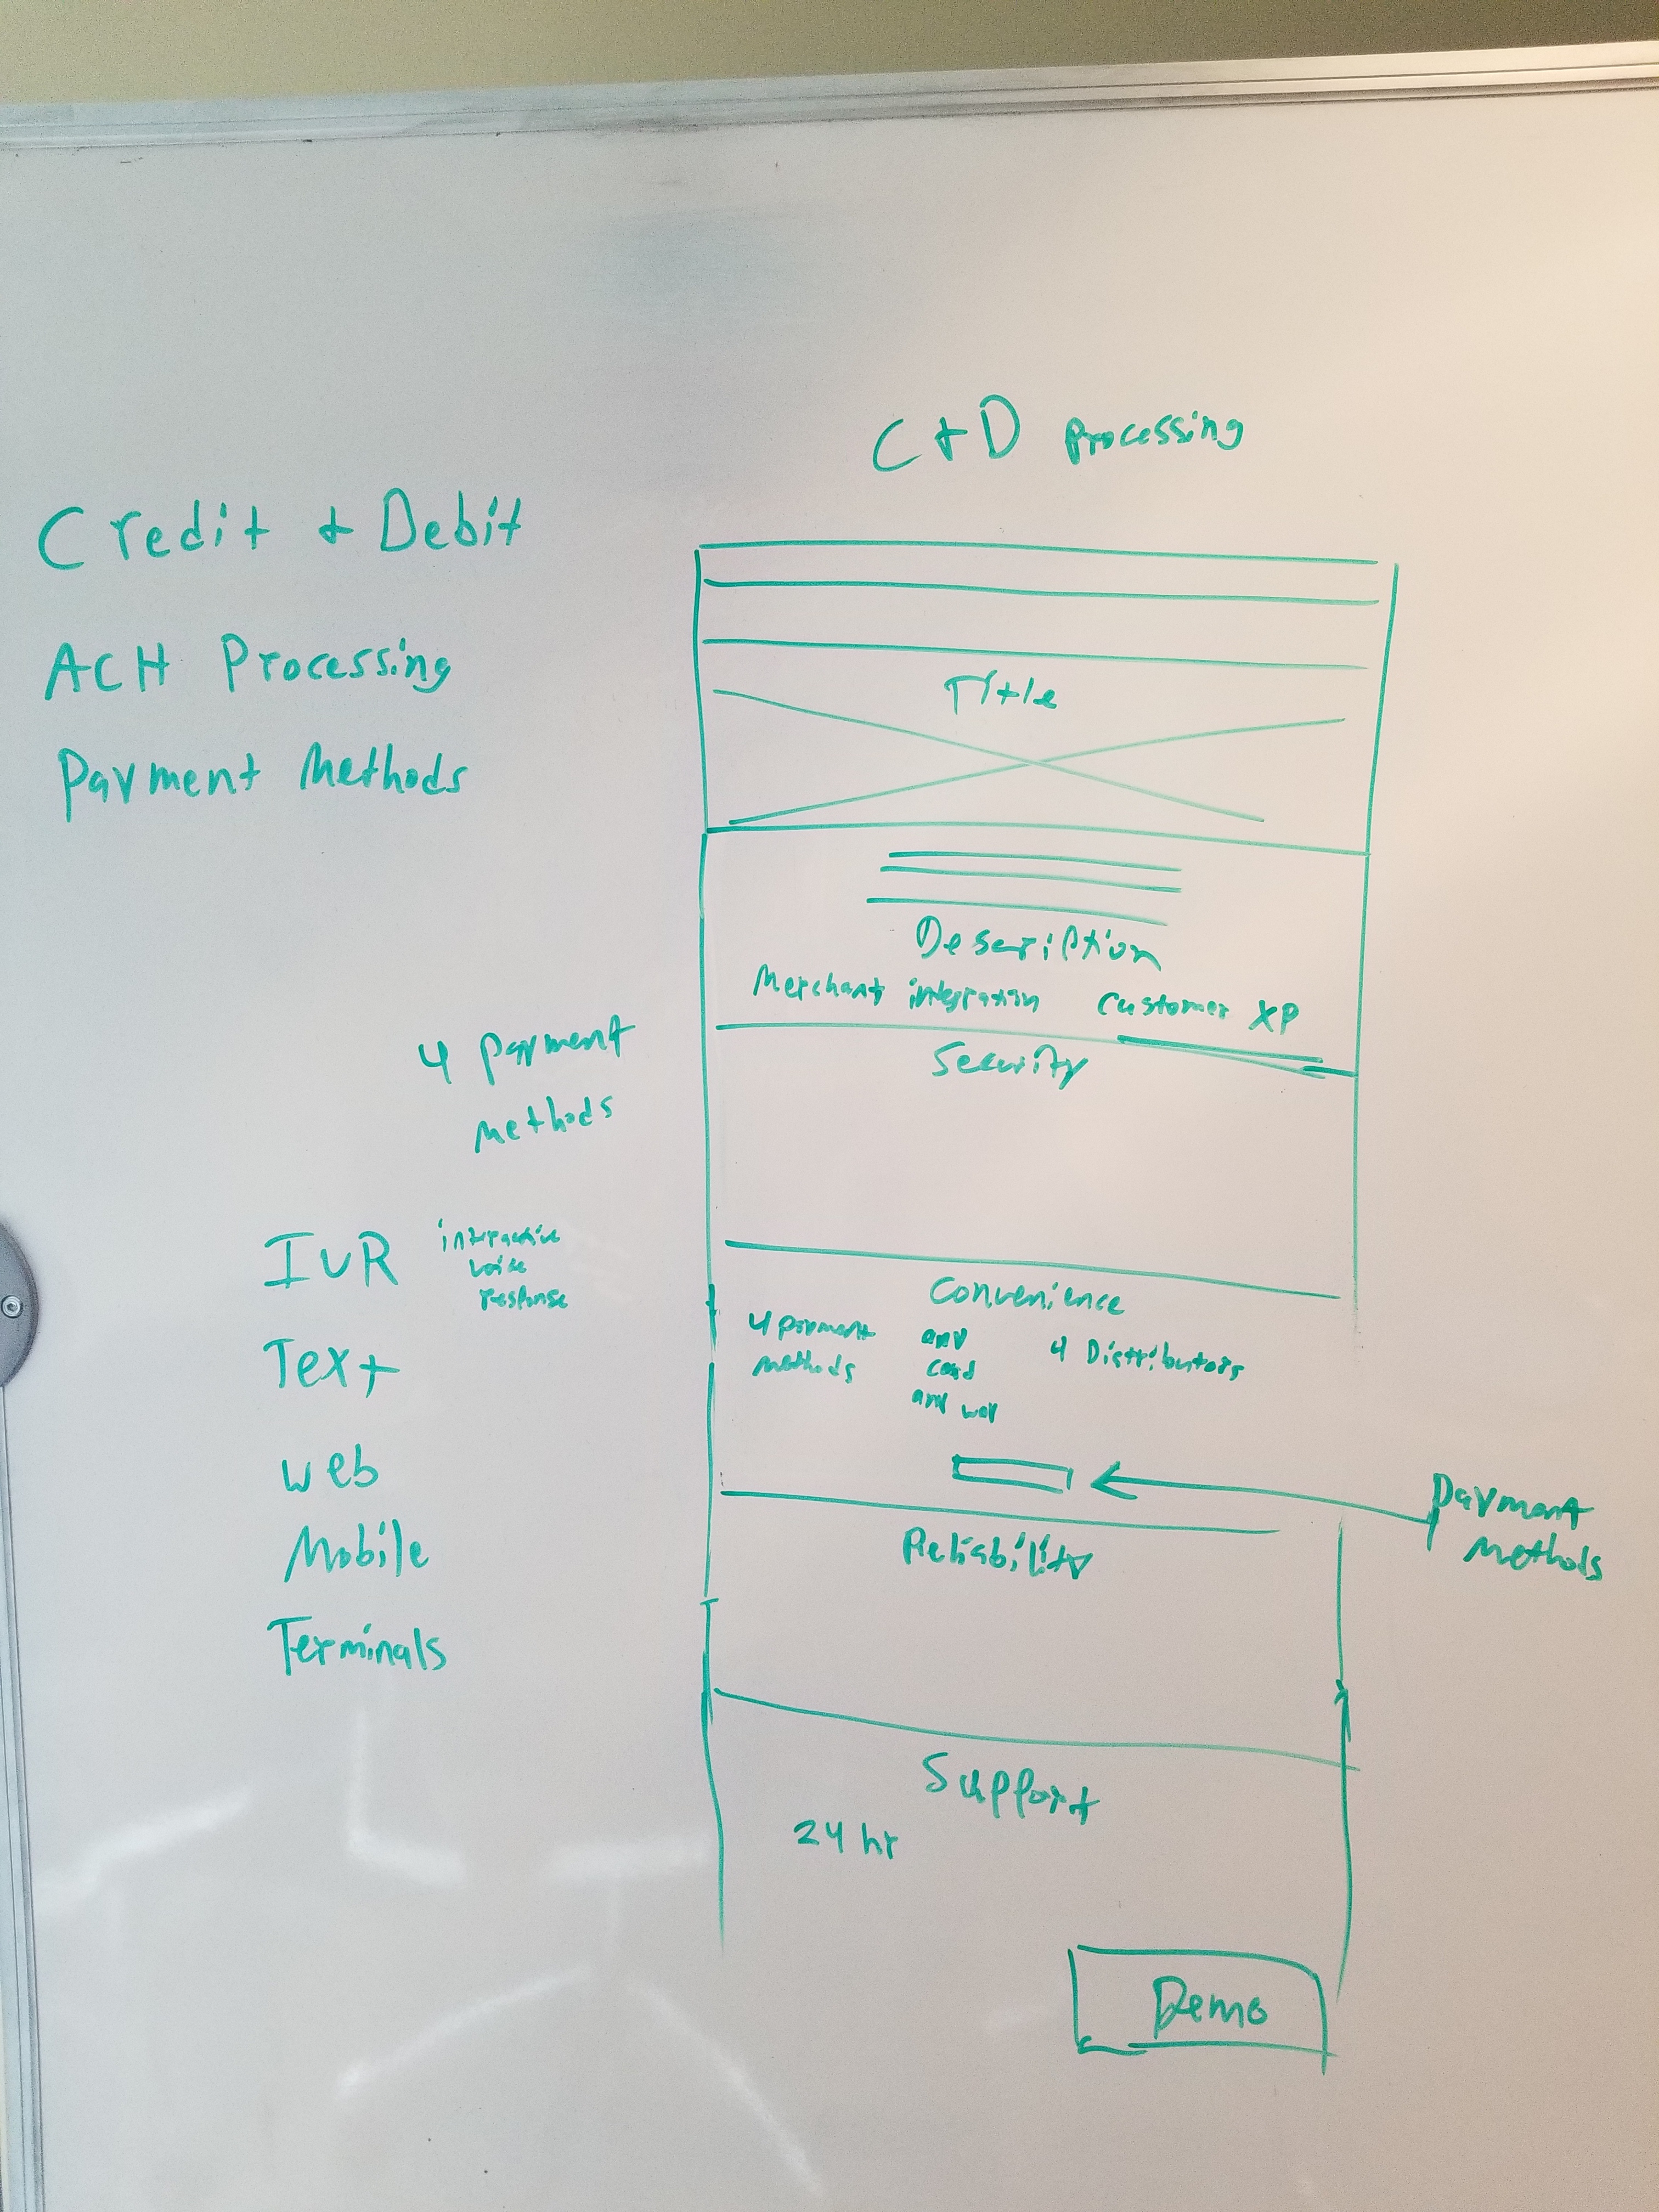 C + D Processing
Credit + Debit
ACH Processing
Payment Methods
Title
Description
Merchant integration Customer XP
Security
4 payment
methods
IVR interactive
voice
response
Text
Web
Mobile
Terminals
Convenience
4 payment
methods
any
card
any way
4 Distributors
Payment
Methods
Reliability
Support
24 hr
Demo